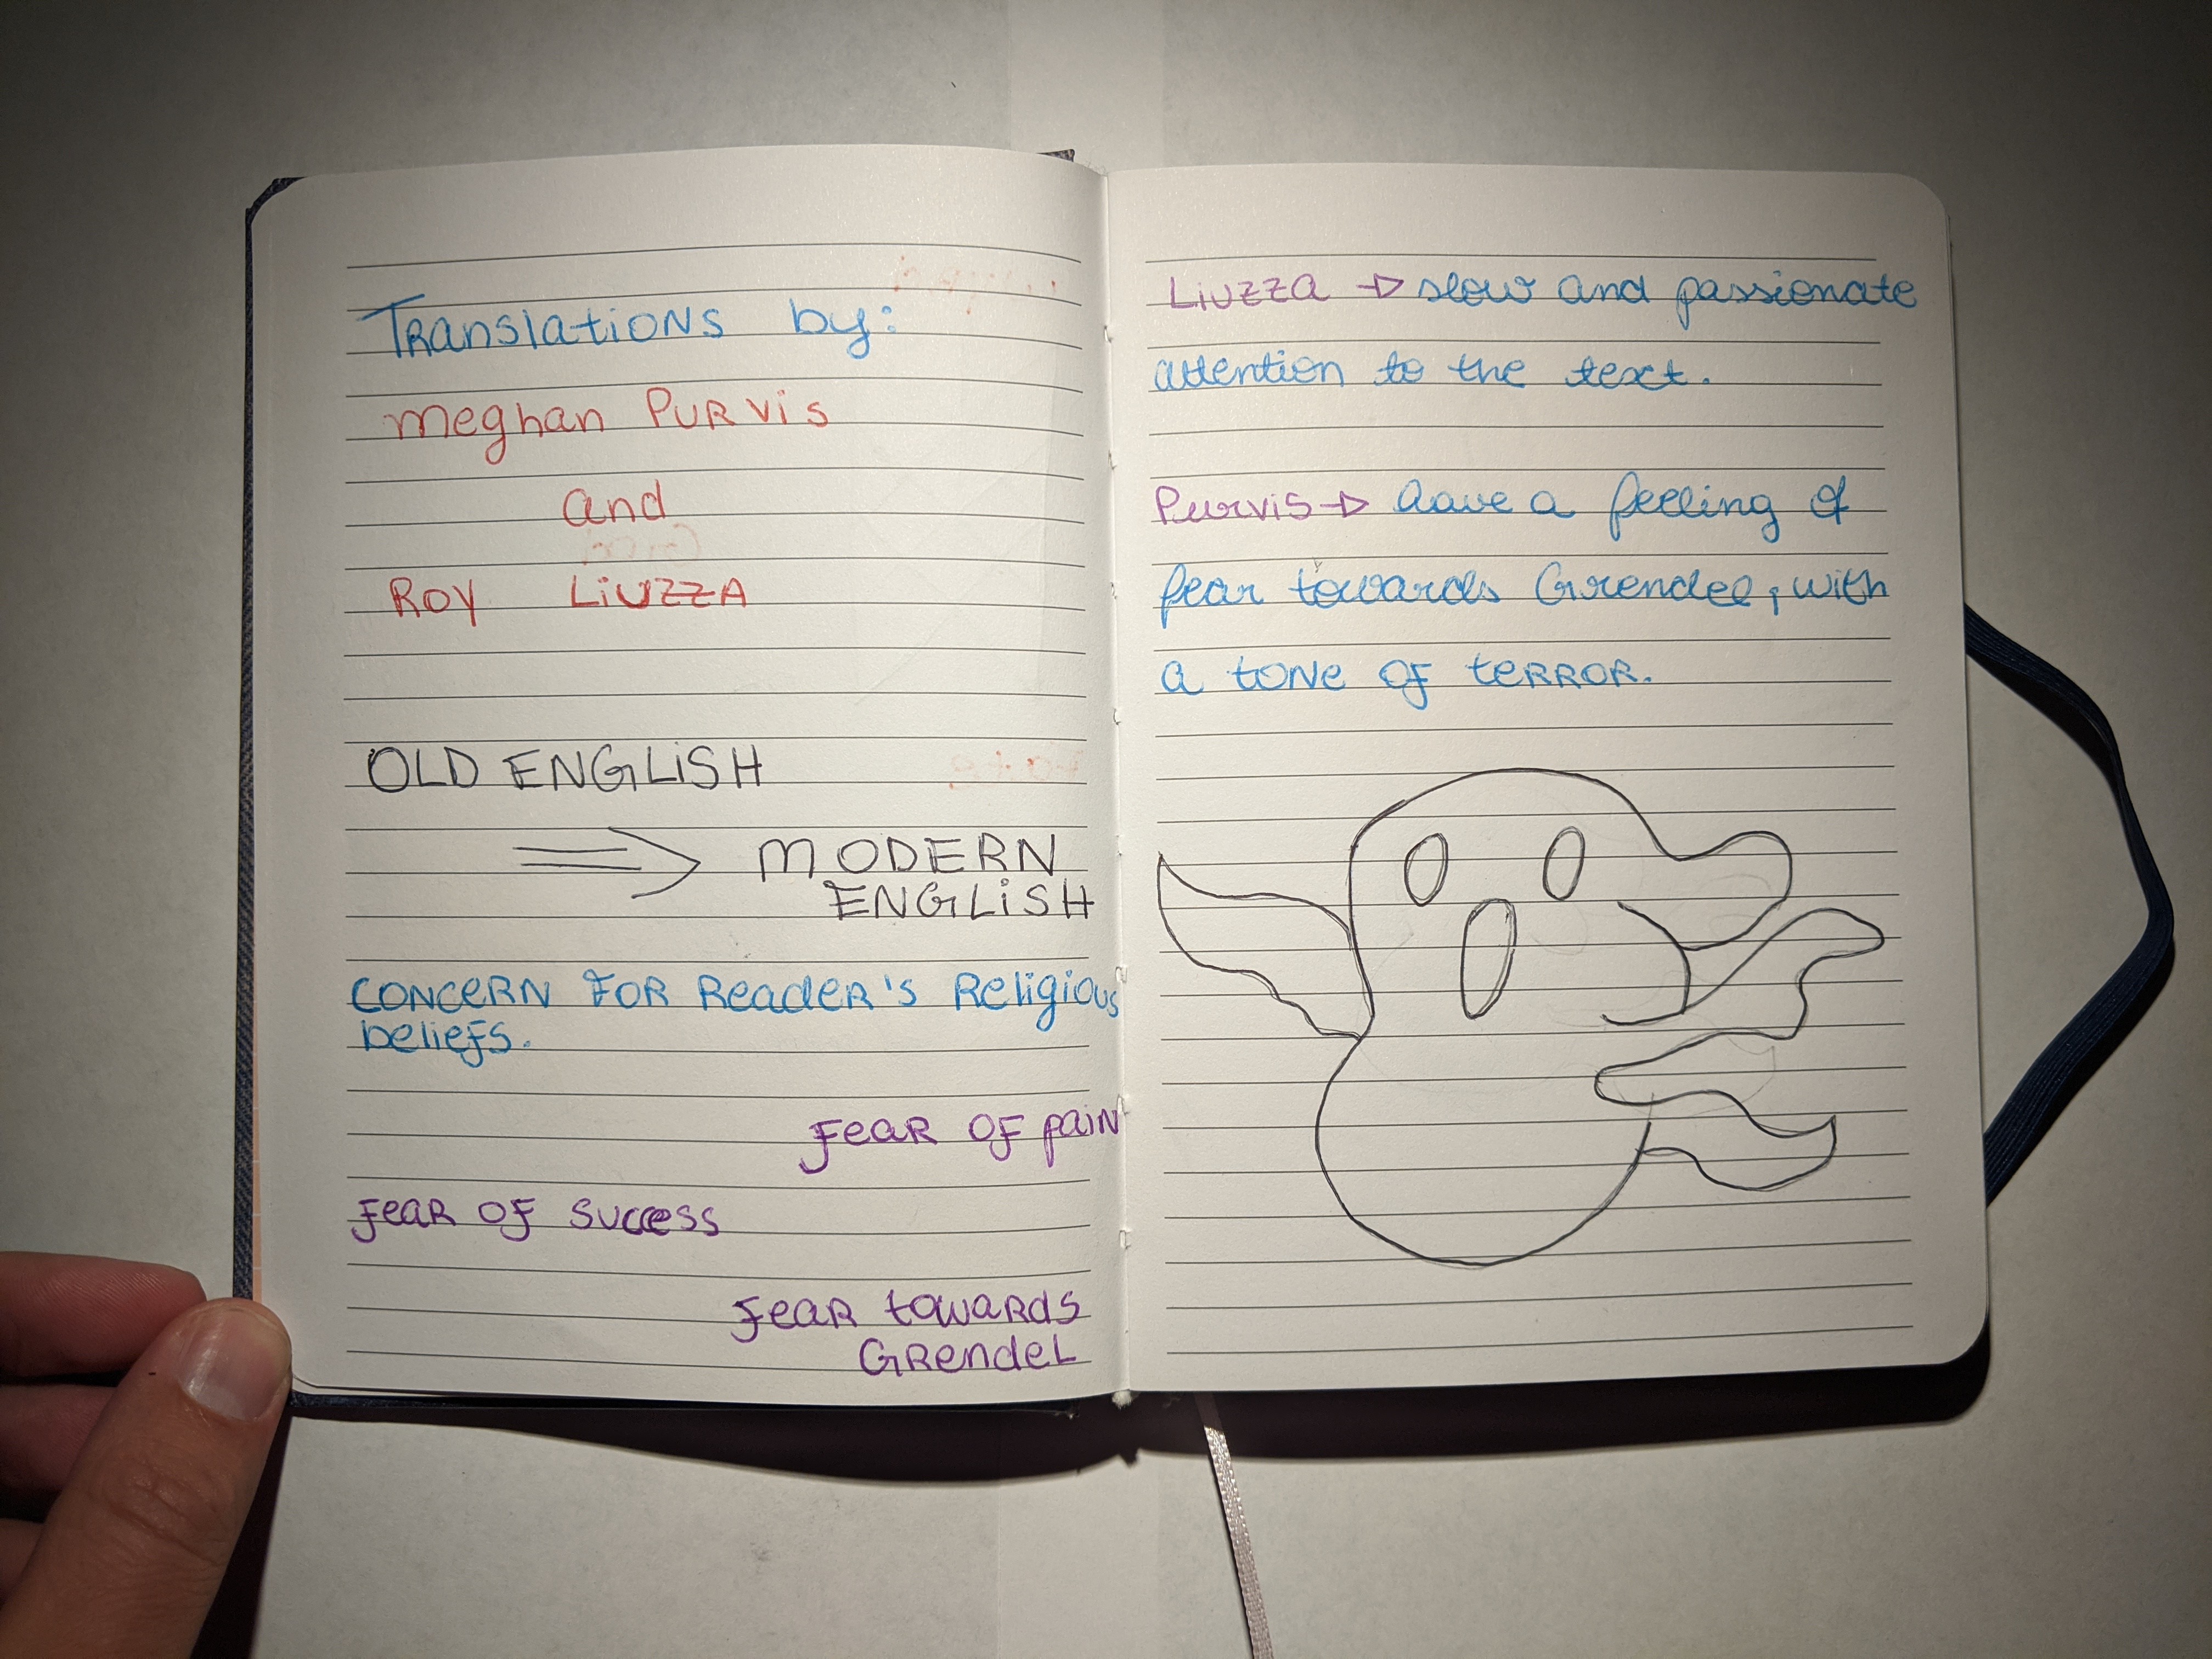 Translations by:
Meghan Purvis
and
Roy Liuzza
OLD ENGLISH
MODERN
ENGLISH
Concern for reader's religious
beliefs.
Fear of pain
Fear of success
Fear towards
Grendel
Liuzza → slow and passionate
attention to the text.
Purvis → have a feeling of
fear towards Grendel, with
a tone of terror.